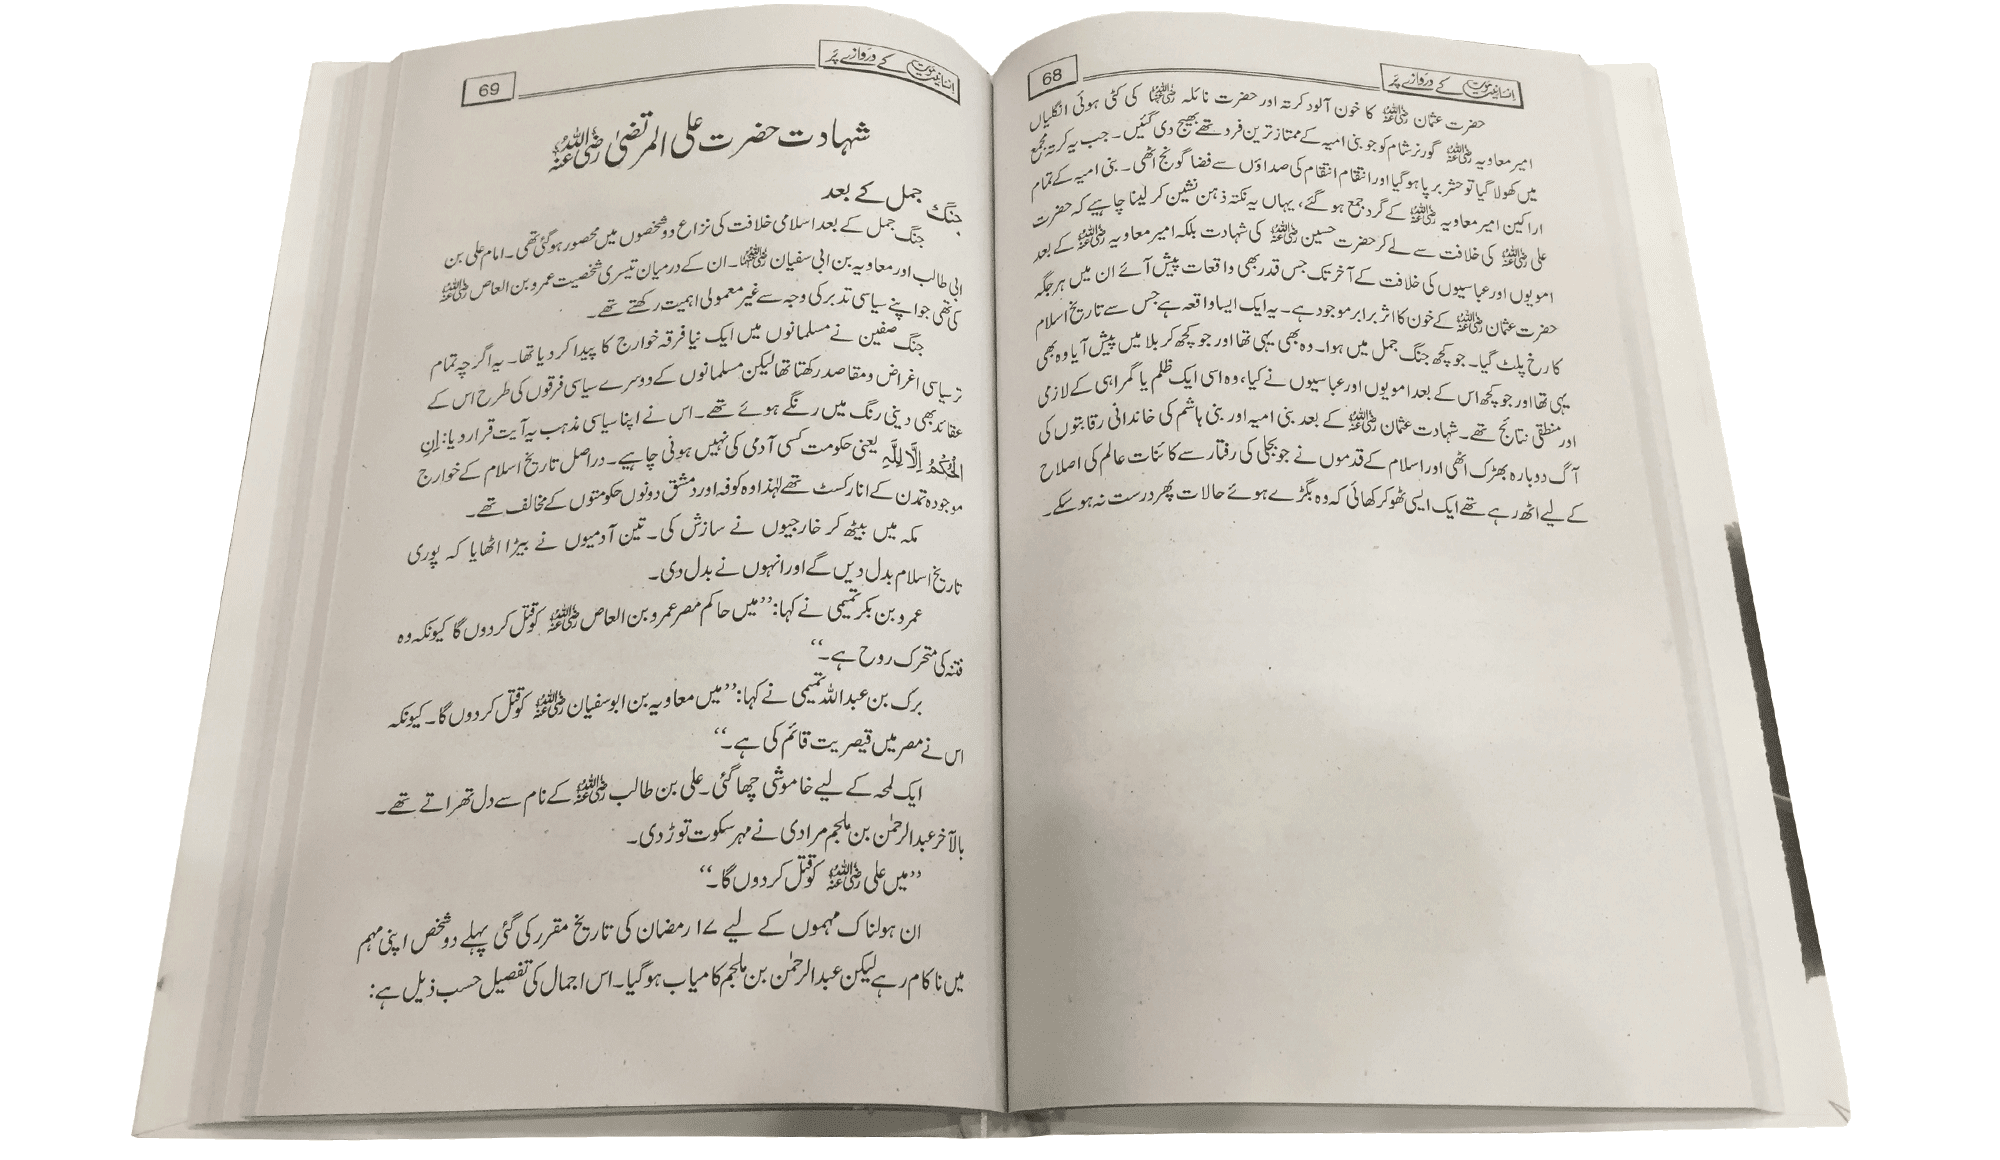 انسانیت موت کے دروازے پر
68
حضرت عثمان رضی اللہ عنہ کا خون آلود کرتہ اور حضرت نائلہ رضی اللہ عنہا کی کٹی ہوئی انگلیاں
امیر معاویہ رضی اللہ عنہ گورنر شام کو جو بنی امیہ کے ممتاز ترین فرد تھے بھیج دی گئیں۔ جب یہ کرتہ مجمع
میں کھولا گیا تو حشر برپا ہو گیا اور انتقام انتقام کی صداؤں سے فضا گونج اٹھی۔ بنی امیہ کے تمام
اراکین امیر معاویہ رضی اللہ عنہ کے گرد جمع ہو گئے، یہاں یہ نکتہ ذہن نشین کر لینا چاہیے کہ حضرت
علی رضی اللہ عنہ کی خلافت سے لے کر حضرت حسین رضی اللہ عنہ کی شہادت بلکہ امیر معاویہ رضی اللہ عنہ کے بعد
امویوں اور عباسیوں کی خلافت کے آخر تک جس قدر بھی واقعات پیش آئے ان میں ہر جگہ
حضرت عثمان رضی اللہ عنہ کے خون کا اثر برابر موجود ہے۔ یہ ایک ایسا واقعہ ہے جس سے تاریخ اسلام
کا رخ پلٹ گیا۔ جو کچھ جنگ جمل میں ہوا۔ وہ بھی یہی تھا اور جو کچھ کربلا میں پیش آیا وہ بھی
یہی تھا اور جو کچھ اس کے بعد امویوں اور عباسیوں نے کیا، وہ اسی ایک ظلم یا گمراہی کے لازمی
اور منطقی نتائج تھے۔ شہادت عثمان رضی اللہ عنہ کے بعد بنی امیہ اور بنی ہاشم کی خاندانی رقابتوں کی
آگ دوبارہ بھڑک اٹھی اور اسلام کے قدموں نے جو بجلی کی رفتار سے کائنات عالم کی اصلاح
کے لیے اٹھ رہے تھے ایک ایسی ٹھوکر کھائی کہ وہ بگڑے ہوئے حالات پھر درست نہ ہو سکے۔
انسانیت موت کے دروازے پر
69
شہادت حضرت علی المرتضیٰ رضی اللہ عنہ
جنگ جمل کے بعد
جنگ جمل کے بعد اسلامی خلافت کی نزاع دو شخصوں میں محصور ہو گئی تھی۔ امام علی بن
ابی طالب اور معاویہ بن ابی سفیان رضی اللہ عنہما۔ ان کے درمیان تیسری شخصیت عمرو بن العاص رضی اللہ عنہ
کی تھی جو اپنے سیاسی تدبر کی وجہ سے غیر معمولی اہمیت رکھتے تھے۔
جنگ صفین نے مسلمانوں میں ایک نیا فرقہ خوارج کا پیدا کر دیا تھا۔ یہ اگرچہ تمام
تر سیاسی اغراض و مقاصد رکھتا تھا لیکن مسلمانوں کے دوسرے سیاسی فرقوں کی طرح اس کے
عقائد بھی دینی رنگ میں رنگے ہوئے تھے۔ اس نے اپنا سیاسی مذہب یہ آیت قرار دیا: اِنِ
الْحُکْمُ اِلَّا لِلّٰہِ یعنی حکومت کسی آدمی کی نہیں ہونی چاہیے۔ دراصل تاریخ اسلام کے خوارج
موجودہ تمدن کے انارکسٹ تھے لہٰذا وہ کوفہ اور دمشق دونوں حکومتوں کے مخالف تھے۔
مکہ میں بیٹھ کر خارجیوں نے سازش کی۔ تین آدمیوں نے بیڑا اٹھایا کہ پوری
تاریخ اسلام بدل دیں گے اور انہوں نے بدل دی۔
عمرو بن بکر تمیمی نے کہا: ”میں حاکم مصر عمرو بن العاص رضی اللہ عنہ کو قتل کر دوں گا کیونکہ وہ
فتنہ کی متحرک روح ہے۔“
برک بن عبداللہ تمیمی نے کہا: ”میں معاویہ بن ابو سفیان رضی اللہ عنہ کو قتل کر دوں گا۔ کیونکہ
اس نے مصر میں قیصریت قائم کی ہے۔“
ایک لمحہ کے لیے خاموشی چھا گئی۔ علی بن طالب رضی اللہ عنہ کے نام سے دل تھراتے تھے۔
بالآخر عبدالرحمٰن بن ملجم مرادی نے مہر سکوت توڑ دی۔
”میں علی رضی اللہ عنہ کو قتل کر دوں گا۔“
ان ہولناک مہموں کے لیے ۱۷ رمضان کی تاریخ مقرر کی گئی پہلے دو شخص اپنی مہم
میں ناکام رہے لیکن عبدالرحمٰن بن ملجم کامیاب ہو گیا۔ اس اجمال کی تفصیل حسب ذیل ہے: